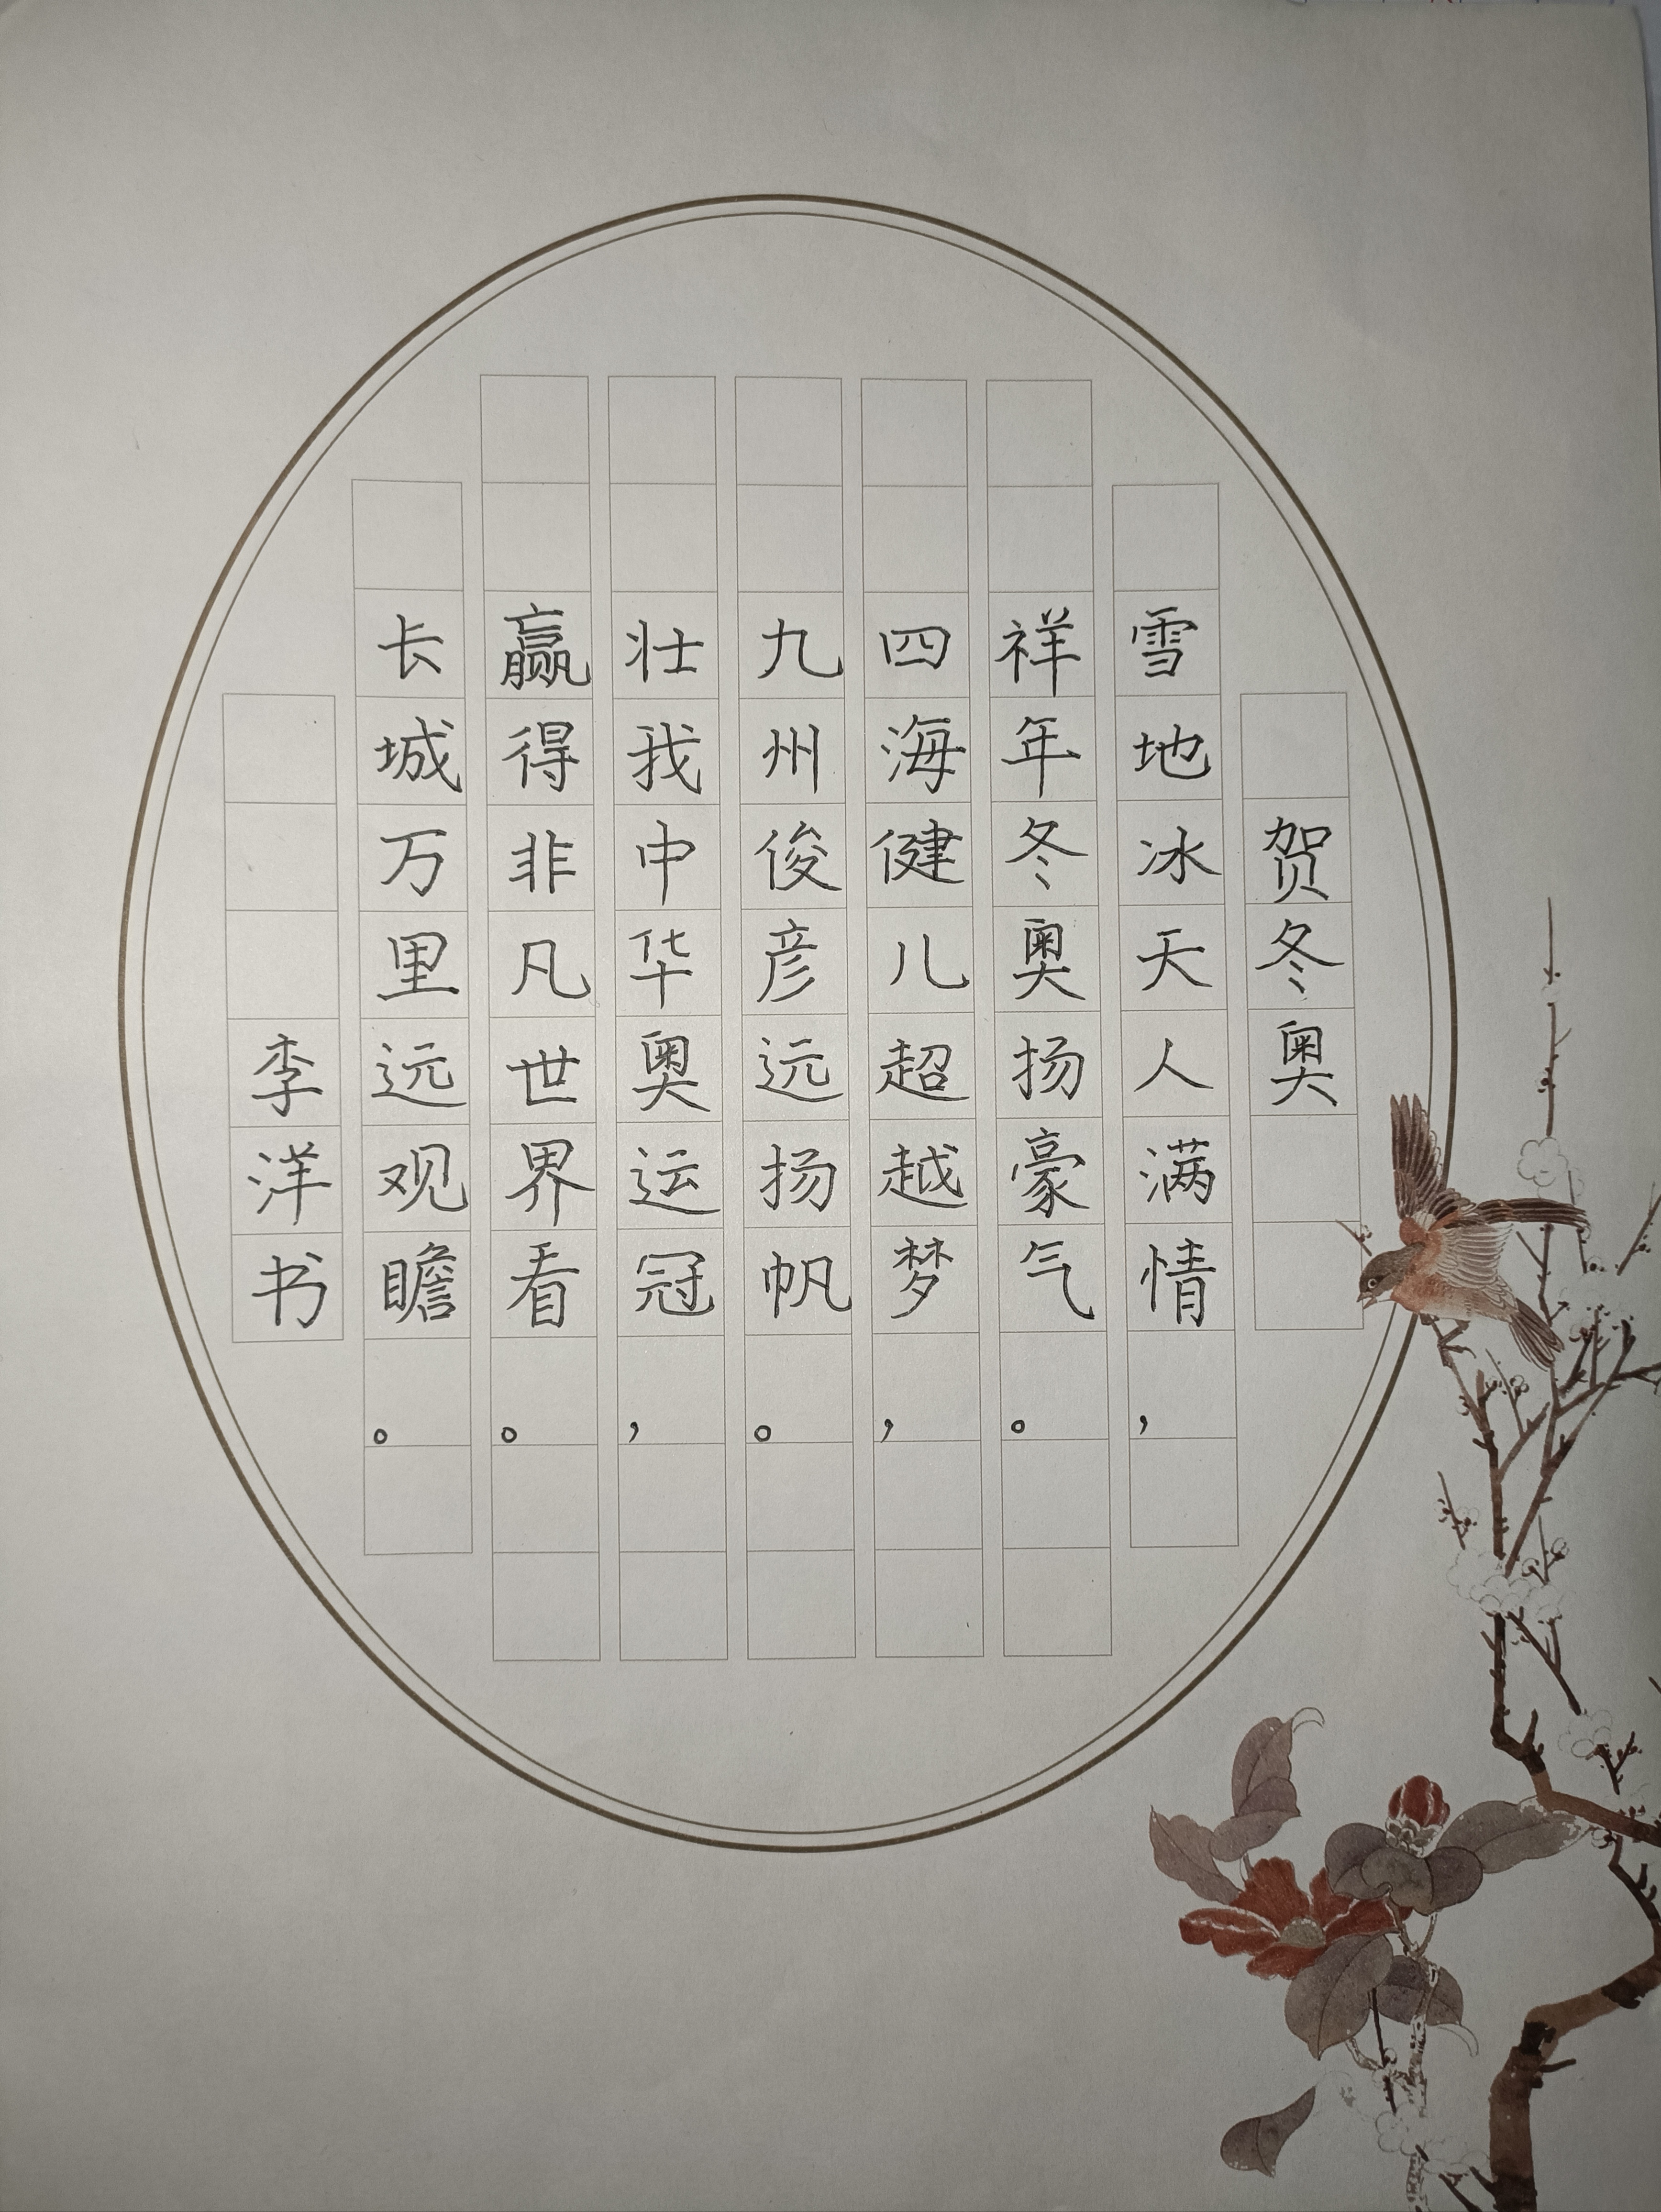 贺冬奥
雪地冰天人满情，
祥年冬奥扬豪气。
四海健儿超越梦，
九州俊彦远扬帆。
壮我中华奥运冠，
赢得非凡世界看。
长城万里远观瞻。
李洋书